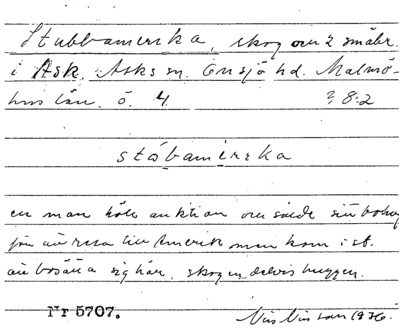 Stubbamerika, skog och 2 småbr.
i Ask. Asks sn. Onsjö hd. Malmö-
hus län. ö. 4. 38:2
stobamerrka
en man höll auktion över både sitt bohag
för att resa till Amerik men kom i st.
att bosätta sig här. skogen delvis huggen.
Nr 5707. Nils Nilsson 1936.